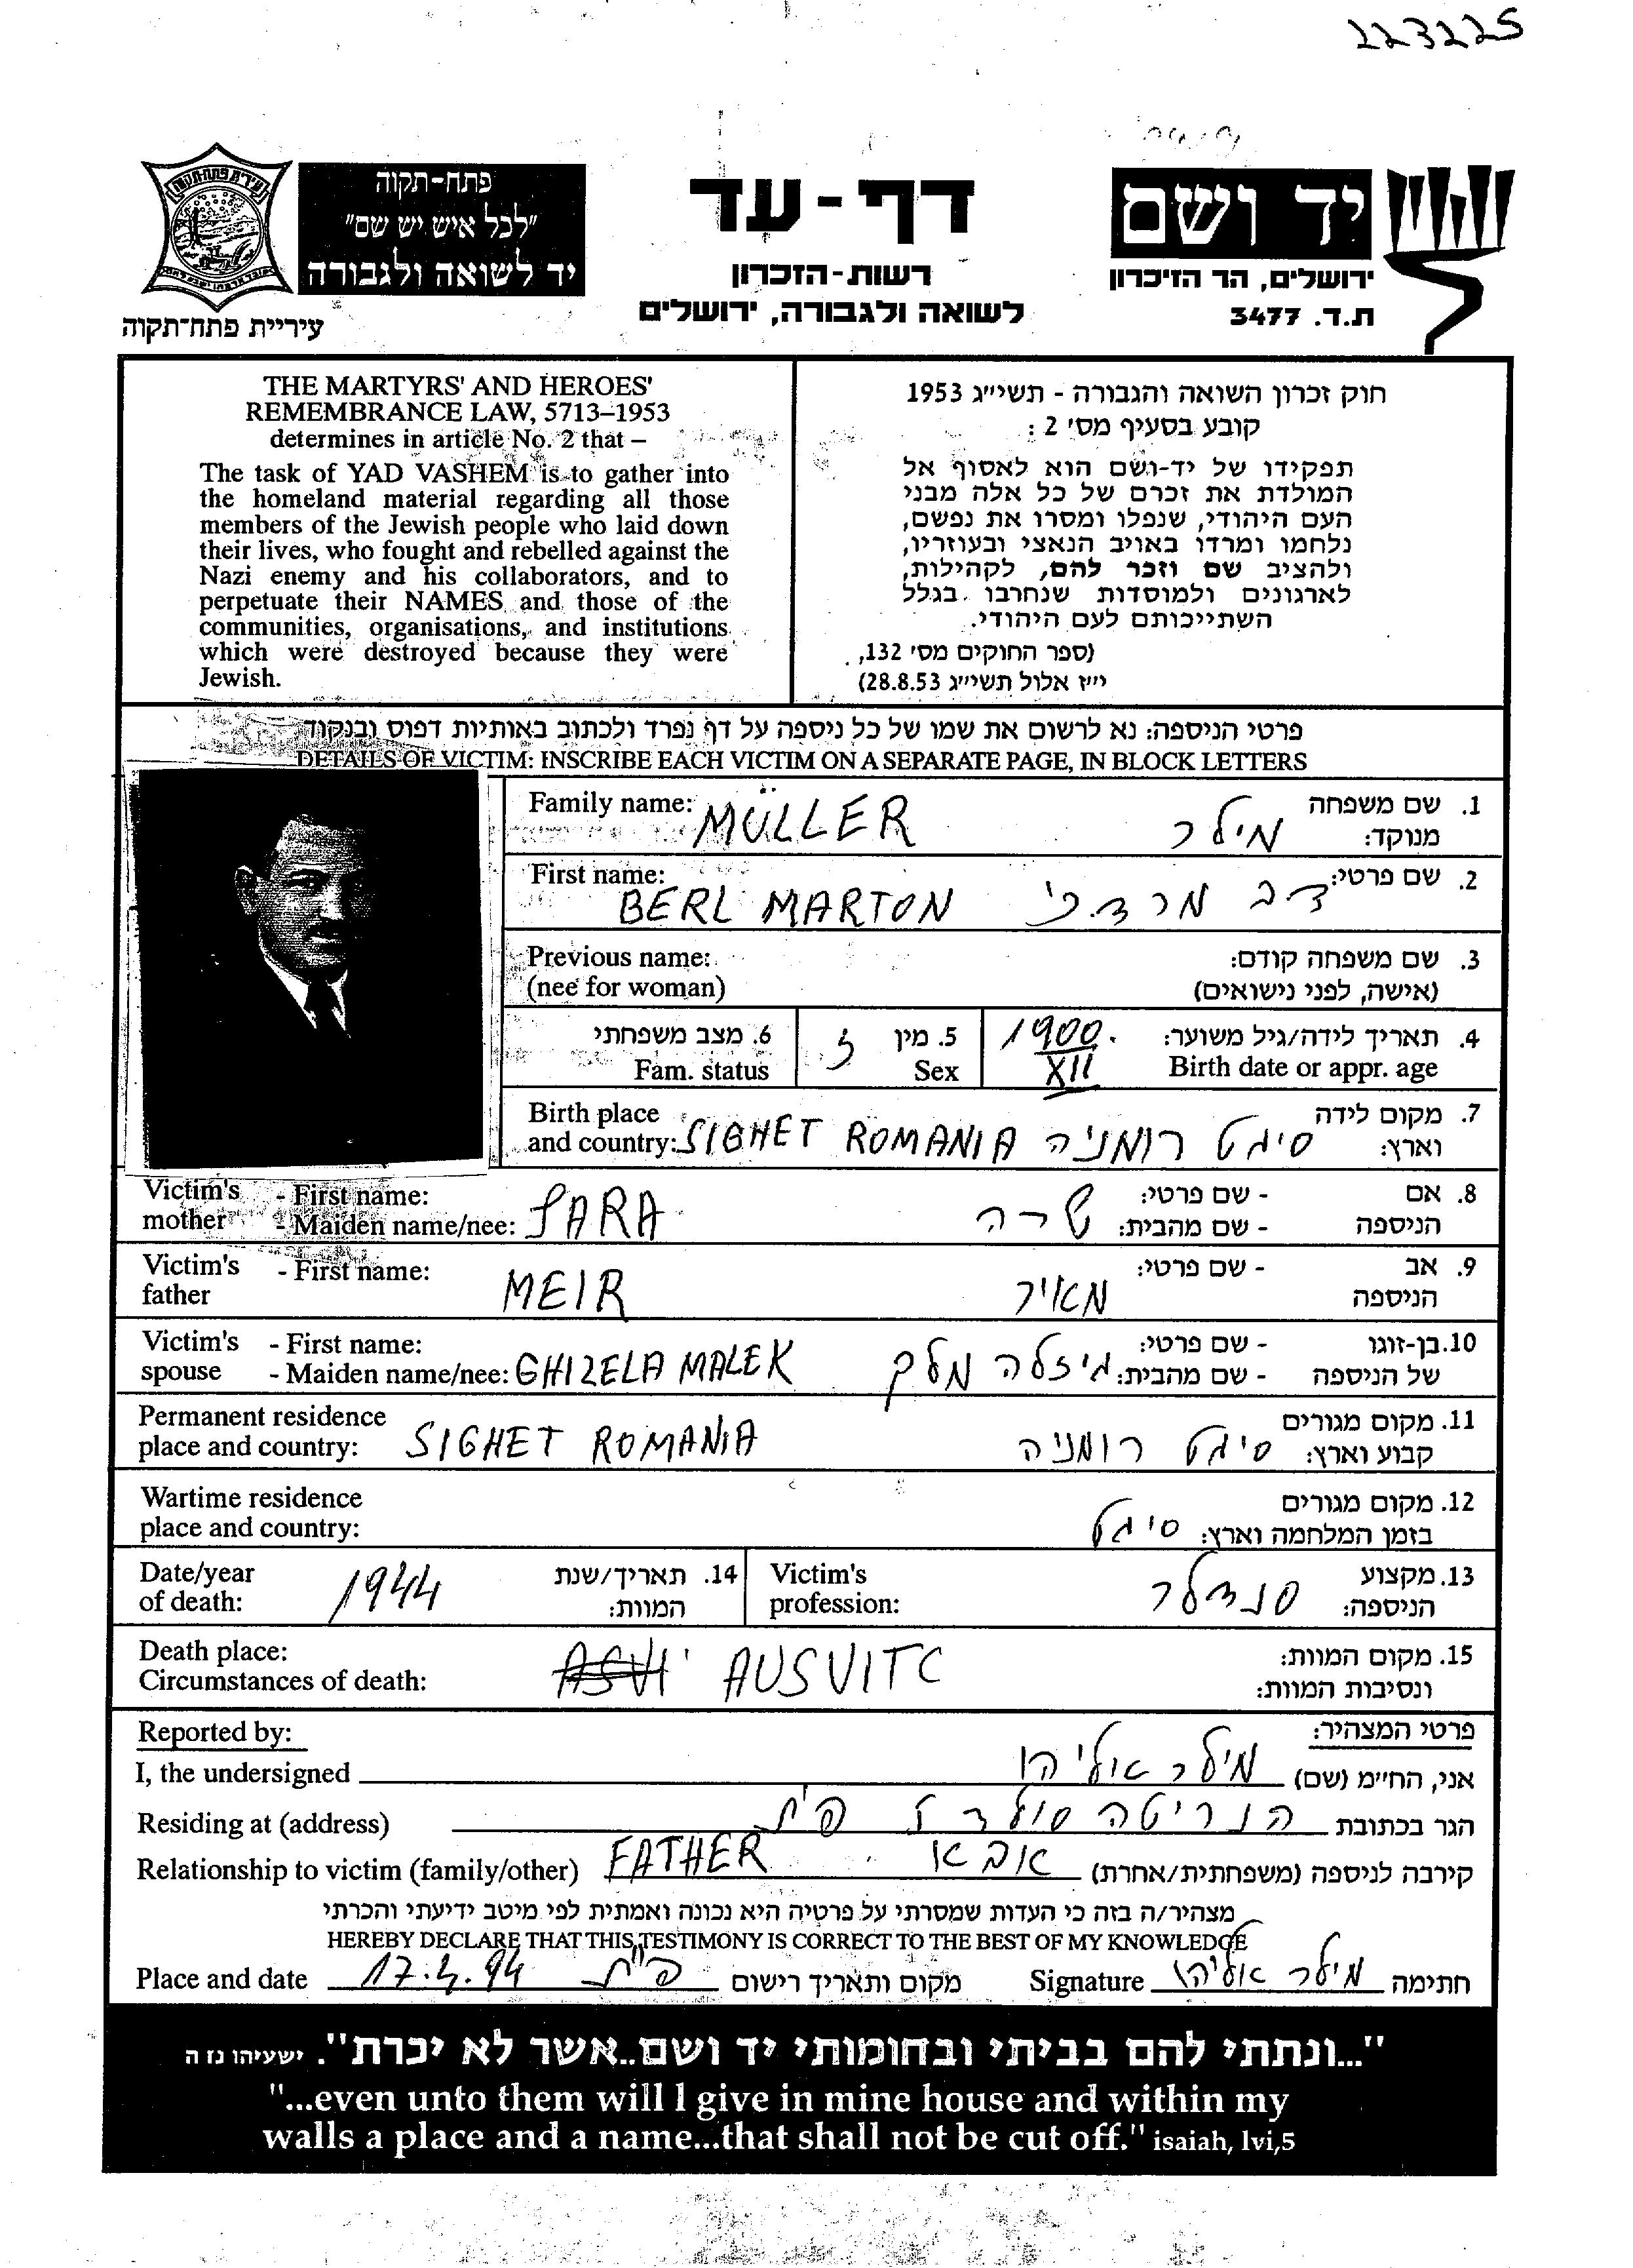 223225
פתח-תקוה
"לכל איש יש שם"
יד לשואה ולגבורה
עיריית פתח־תקוה
דף-עד
רשות-הזכרון
לשואה ולגבורה, ירושלים
יד ושם
ירושלים, הר הזיכרון
ת.ד. 3477
THE MARTYRS' AND HEROES'
REMEMBRANCE LAW, 5713–1953
determines in article No. 2 that –
The task of YAD VASHEM is to gather into
the homeland material regarding all those
members of the Jewish people who laid down
their lives, who fought and rebelled against the
Nazi enemy and his collaborators, and to
perpetuate their NAMES and those of the
communities, organisations, and institutions
which were destroyed because they were
Jewish.
חוק זכרון השואה והגבורה - תשי״ג 1953
קובע בסעיף מס׳ 2 :
תפקידו של יד-ושם הוא לאסוף אל
המולדת את זכרם של כל אלה מבני
העם היהודי, שנפלו ומסרו את נפשם,
נלחמו ומרדו באויב הנאצי ובעוזריו,
ולהציב שם וזכר להם, לקהילות,
לארגונים ולמוסדות שנחרבו בגלל
השתייכותם לעם היהודי.
(ספר החוקים מס׳ 132,
י״ז אלול תשי״ג 28.8.53)
פרטי הניספה: נא לרשום את שמו של כל ניספה על דף נפרד ולכתוב באותיות דפוס ובנקוד
DETAILS OF VICTIM: INSCRIBE EACH VICTIM ON A SEPARATE PAGE, IN BLOCK LETTERS
Family name: MÜLLER מילר 1. שם משפחה
מנוקד:
First name: 2. שם פרטי:
BERL MARTON דב מרדכי
Previous name: 3. שם משפחה קודם:
(nee for woman) (אישה, לפני נישואים)
6. מצב משפחתי 5. מין ז 1900 4. תאריך לידה/גיל משוער:
Fam. status Sex XII Birth date or appr. age
Birth place 7. מקום לידה
and country: SIGHET ROMANIA סיגט רומניה וארץ:
Victim's - First name: - שם פרטי: 8. אם
mother - Maiden name/nee: SARA שרה - שם מהבית: הניספה
Victim's - First name: - שם פרטי: 9. אב
father MEIR מאיר הניספה
Victim's - First name: - שם פרטי: 10. בן-זוגו
spouse - Maiden name/nee: GHIZELA MALEK גיזלה מלק - שם מהבית: של הניספה
Permanent residence 11. מקום מגורים
place and country: SIGHET ROMANIA סיגט רומניה קבוע וארץ:
Wartime residence 12. מקום מגורים
place and country: סיגט בזמן המלחמה וארץ:
Date/year 14. תאריך/שנת Victim's 13. מקצוע
of death: 1944 המוות: profession: סנדלר הניספה:
Death place: 15. מקום המוות:
Circumstances of death: AUSVITC ונסיבות המוות:
Reported by: פרטי המצהיר:
I, the undersigned מילר אליהו אני, החי״מ (שם)
Residing at (address) הנריטה סולד 7 פ״ת הגר בכתובת
Relationship to victim (family/other) FATHER אבא קירבה לניספה (משפחתית/אחרת)
מצהיר/ה בזה כי העדות שמסרתי על פרטיה היא נכונה ואמתית לפי מיטב ידיעתי והכרתי
HEREBY DECLARE THAT THIS TESTIMONY IS CORRECT TO THE BEST OF MY KNOWLEDGE
Place and date 17.4.94 פ״ת מקום ותאריך רישום Signature מילר אליהו חתימה
"...ונתתי להם בביתי ובחומותי יד ושם..אשר לא יכרת". ישעיהו נז ה
"...even unto them will I give in mine house and within my
walls a place and a name...that shall not be cut off." isaiah, lvi,5